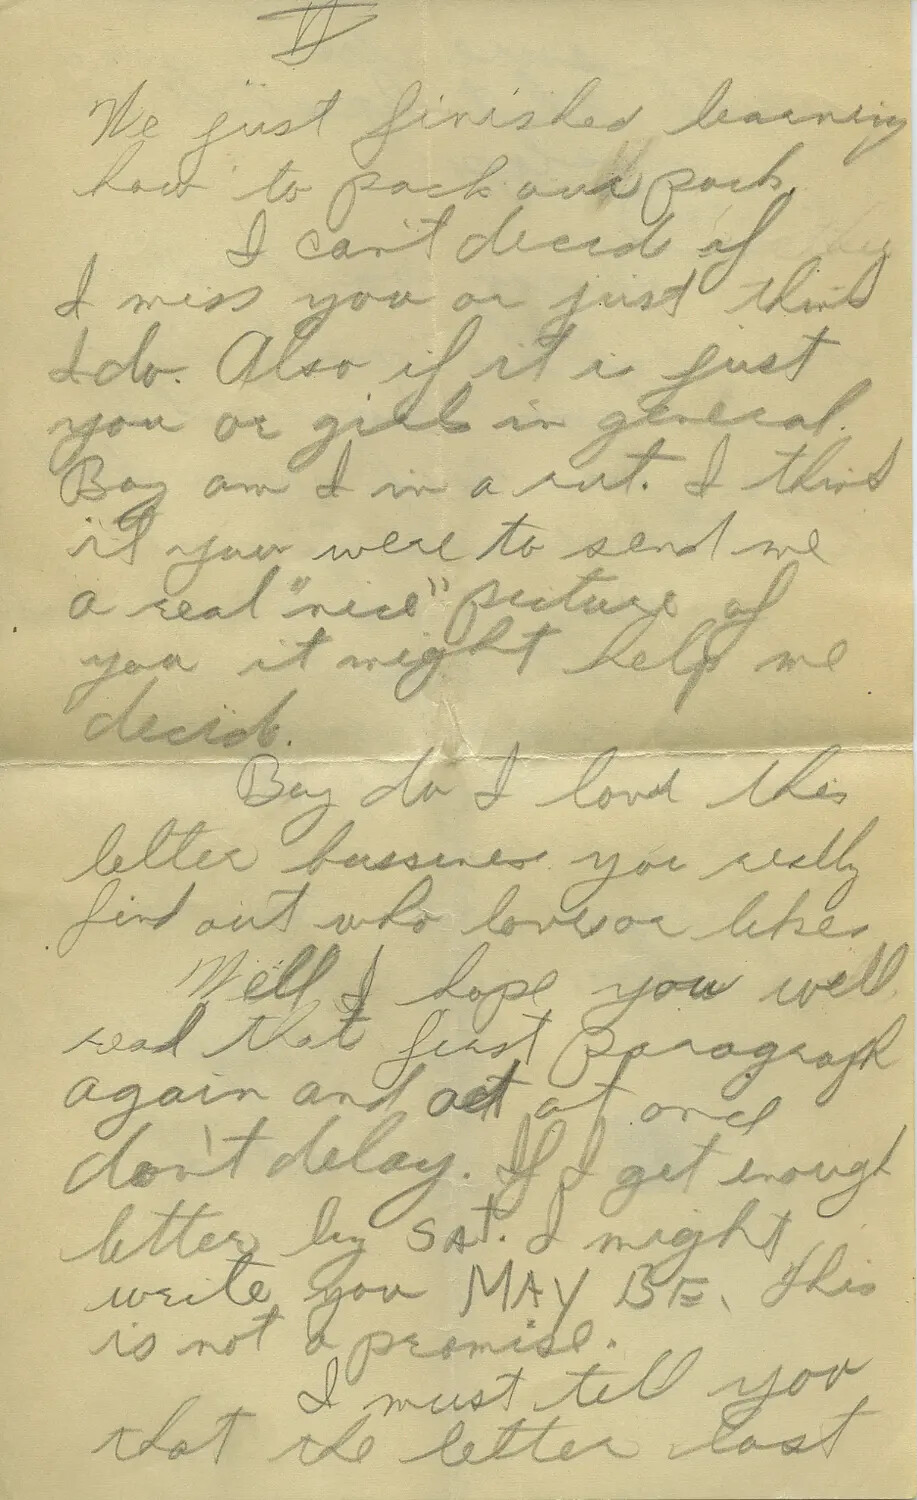 II
We just finished learning
how to pack our pack.
I can't decid if
I miss you or just think
I do. Also if it is just
you or girls in general.
Boy am I in a rut. I think
if you were to send me
a real "nice" picture of
you it might help me
decid.
Boy do I love this
letter bussiness you really
find out who loves or likes
Well I hope you will
read that first Paragraph
again and act at once
don't delay. If I get enough
letters by SAT. I might
write you MAY BE. This
is not a promise.
I must tell you
that the letter last